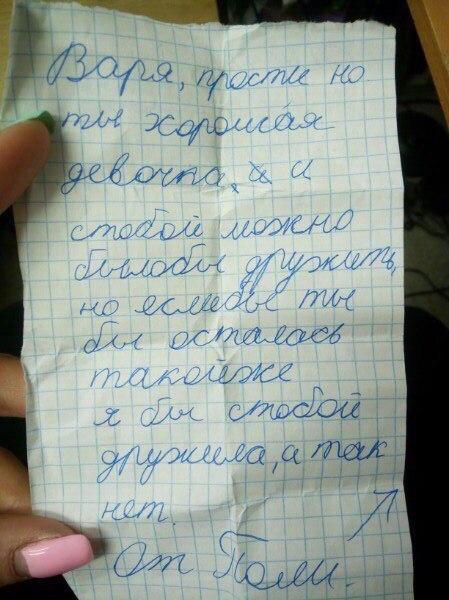 Варя, прости но
ты хорошая
девочка, и и
стобой можно
былобы дружить,
но еслибы ты
бы осталась
такойже
я бы стобой
дружила, а так
нет.
От Поли.